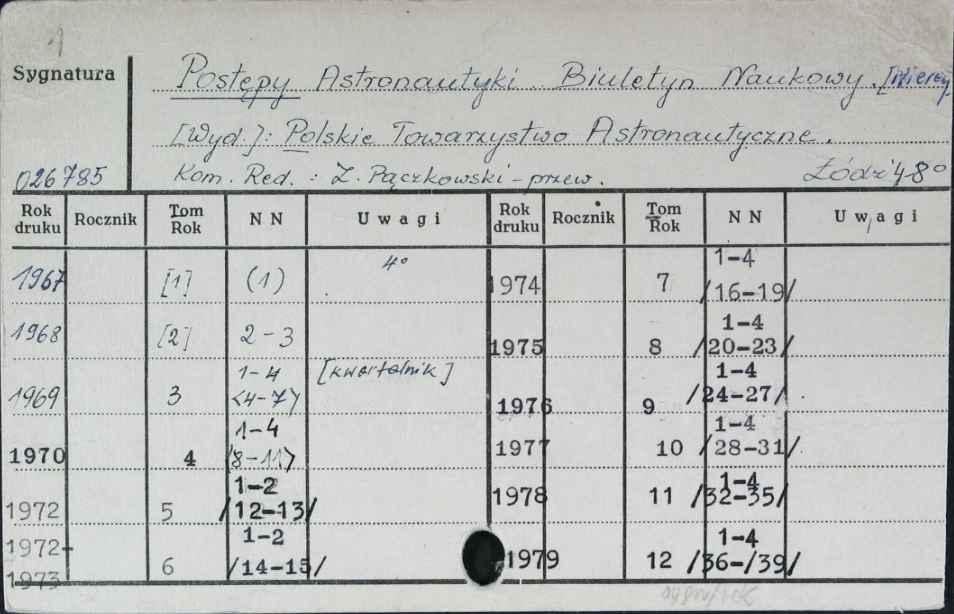 1
Sygnatura
Postępy Astronautyki. Biuletyn Naukowy.
[Wyd.]: Polskie Towarzystwo Astronautyczne.
026785
Kom. Red. : Z. Pączkowski - przew. Łódź 4-8°
Rok druku Rocznik Tom Rok N N Uwagi Rok druku Rocznik Tom Rok N N Uwagi
1967 [1] (1) 4°
1968 [2] 2-3
1969 3 1-4 <4-7> [kwartalnik]
1970 4 1-4 /8-11>
1972 5 1-2 /12-13/
1972-1973 6 1-2 /14-15/
1974 7 1-4 /16-19/
1975 8 1-4 /20-23/
1976 9 1-4 /24-27/
1977 10 1-4 /28-31/
1978 11 1-4 /32-35/
1979 12 1-4 /36-/39/